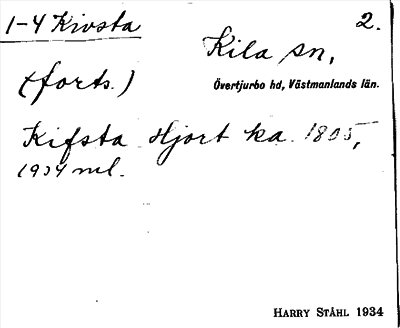 1-4 Kivsta 2.
Kila sn,
(forts.) Övertjurbo hd, Västmanlands län.
Kifsta Hjort ka. 1805,
1934 ml.
HARRY STÅHL 1934